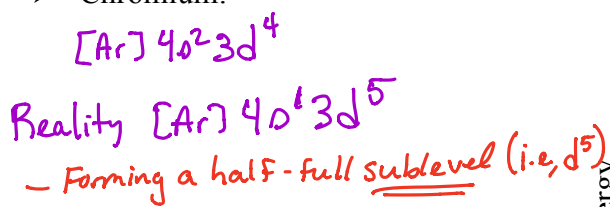 Chromium:
[Ar] 4s²3d⁴
Reality [Ar] 4s¹3d⁵
- Forming a half-full sublevel (i.e, d⁵)